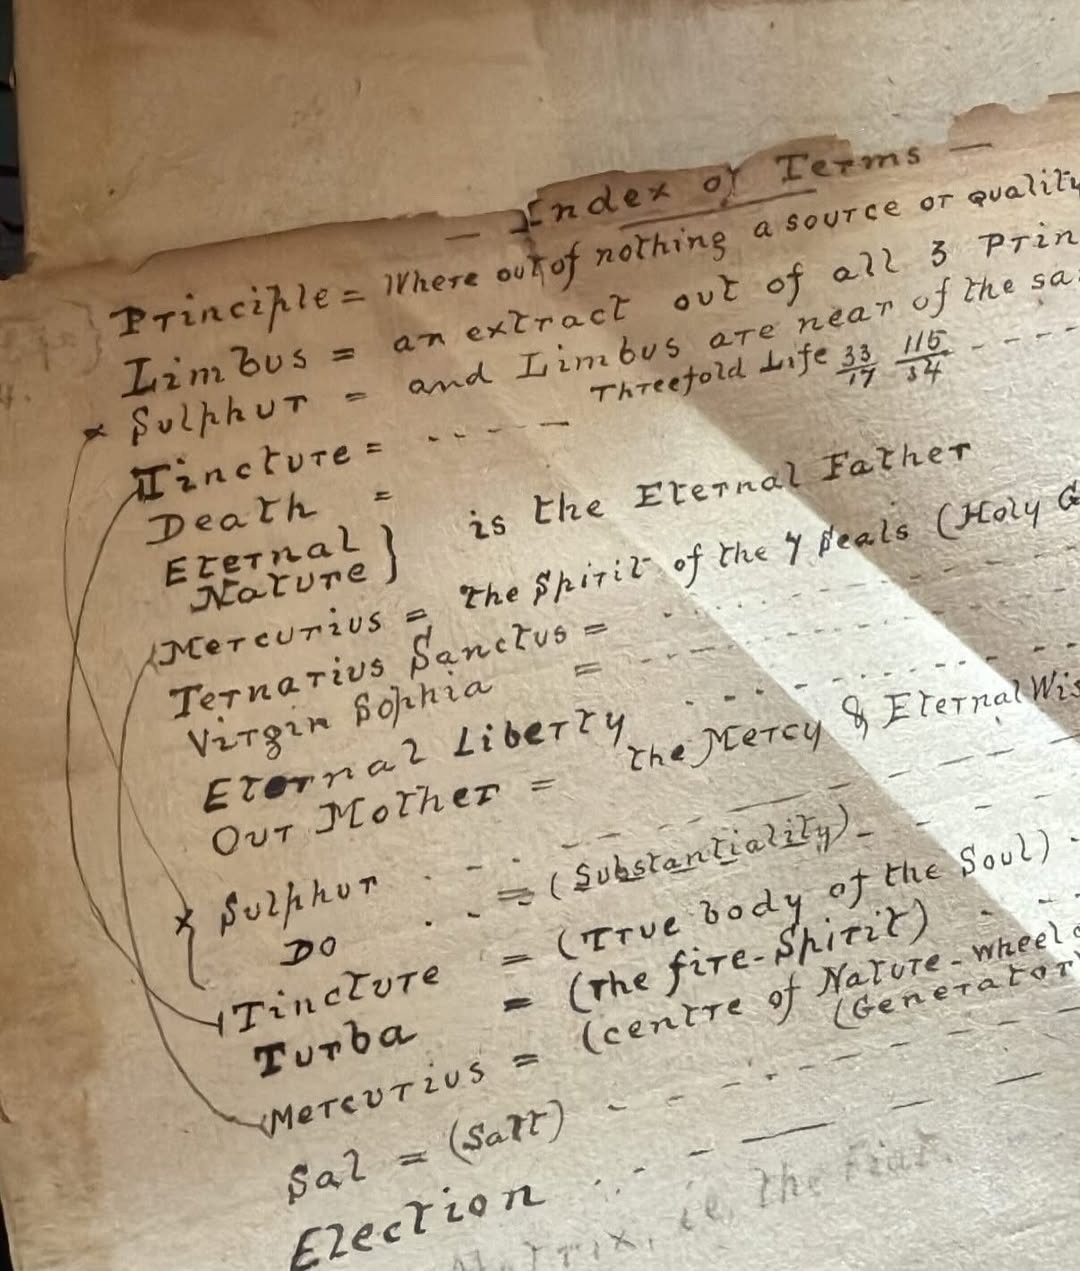 — Index of Terms —
Principle = Where out of nothing a source or quality
Limbus = an extract out of all 3 Prin
× Sulphur = and Limbus are near of the sa
Tincture = ----- Threefold Life 33/17 115/34 ----
Death =
Eternal } is the Eternal Father
Nature
Mercurius = the Spirit of the 7 Seals (Holy G
Ternarius Sanctus =
Virgin Sophia =
Eternal Liberty
Our Mother = the Mercy & Eternal Wis
× Sulphur
Do = (Substantiality)
Tincture = (True body of the Soul)
Turba = (the fire-Spirit)
Mercurius = (centre of Nature-wheel o
(Generator)
Sal = (Salt)
Election
Matrix, ie, the Fiat.